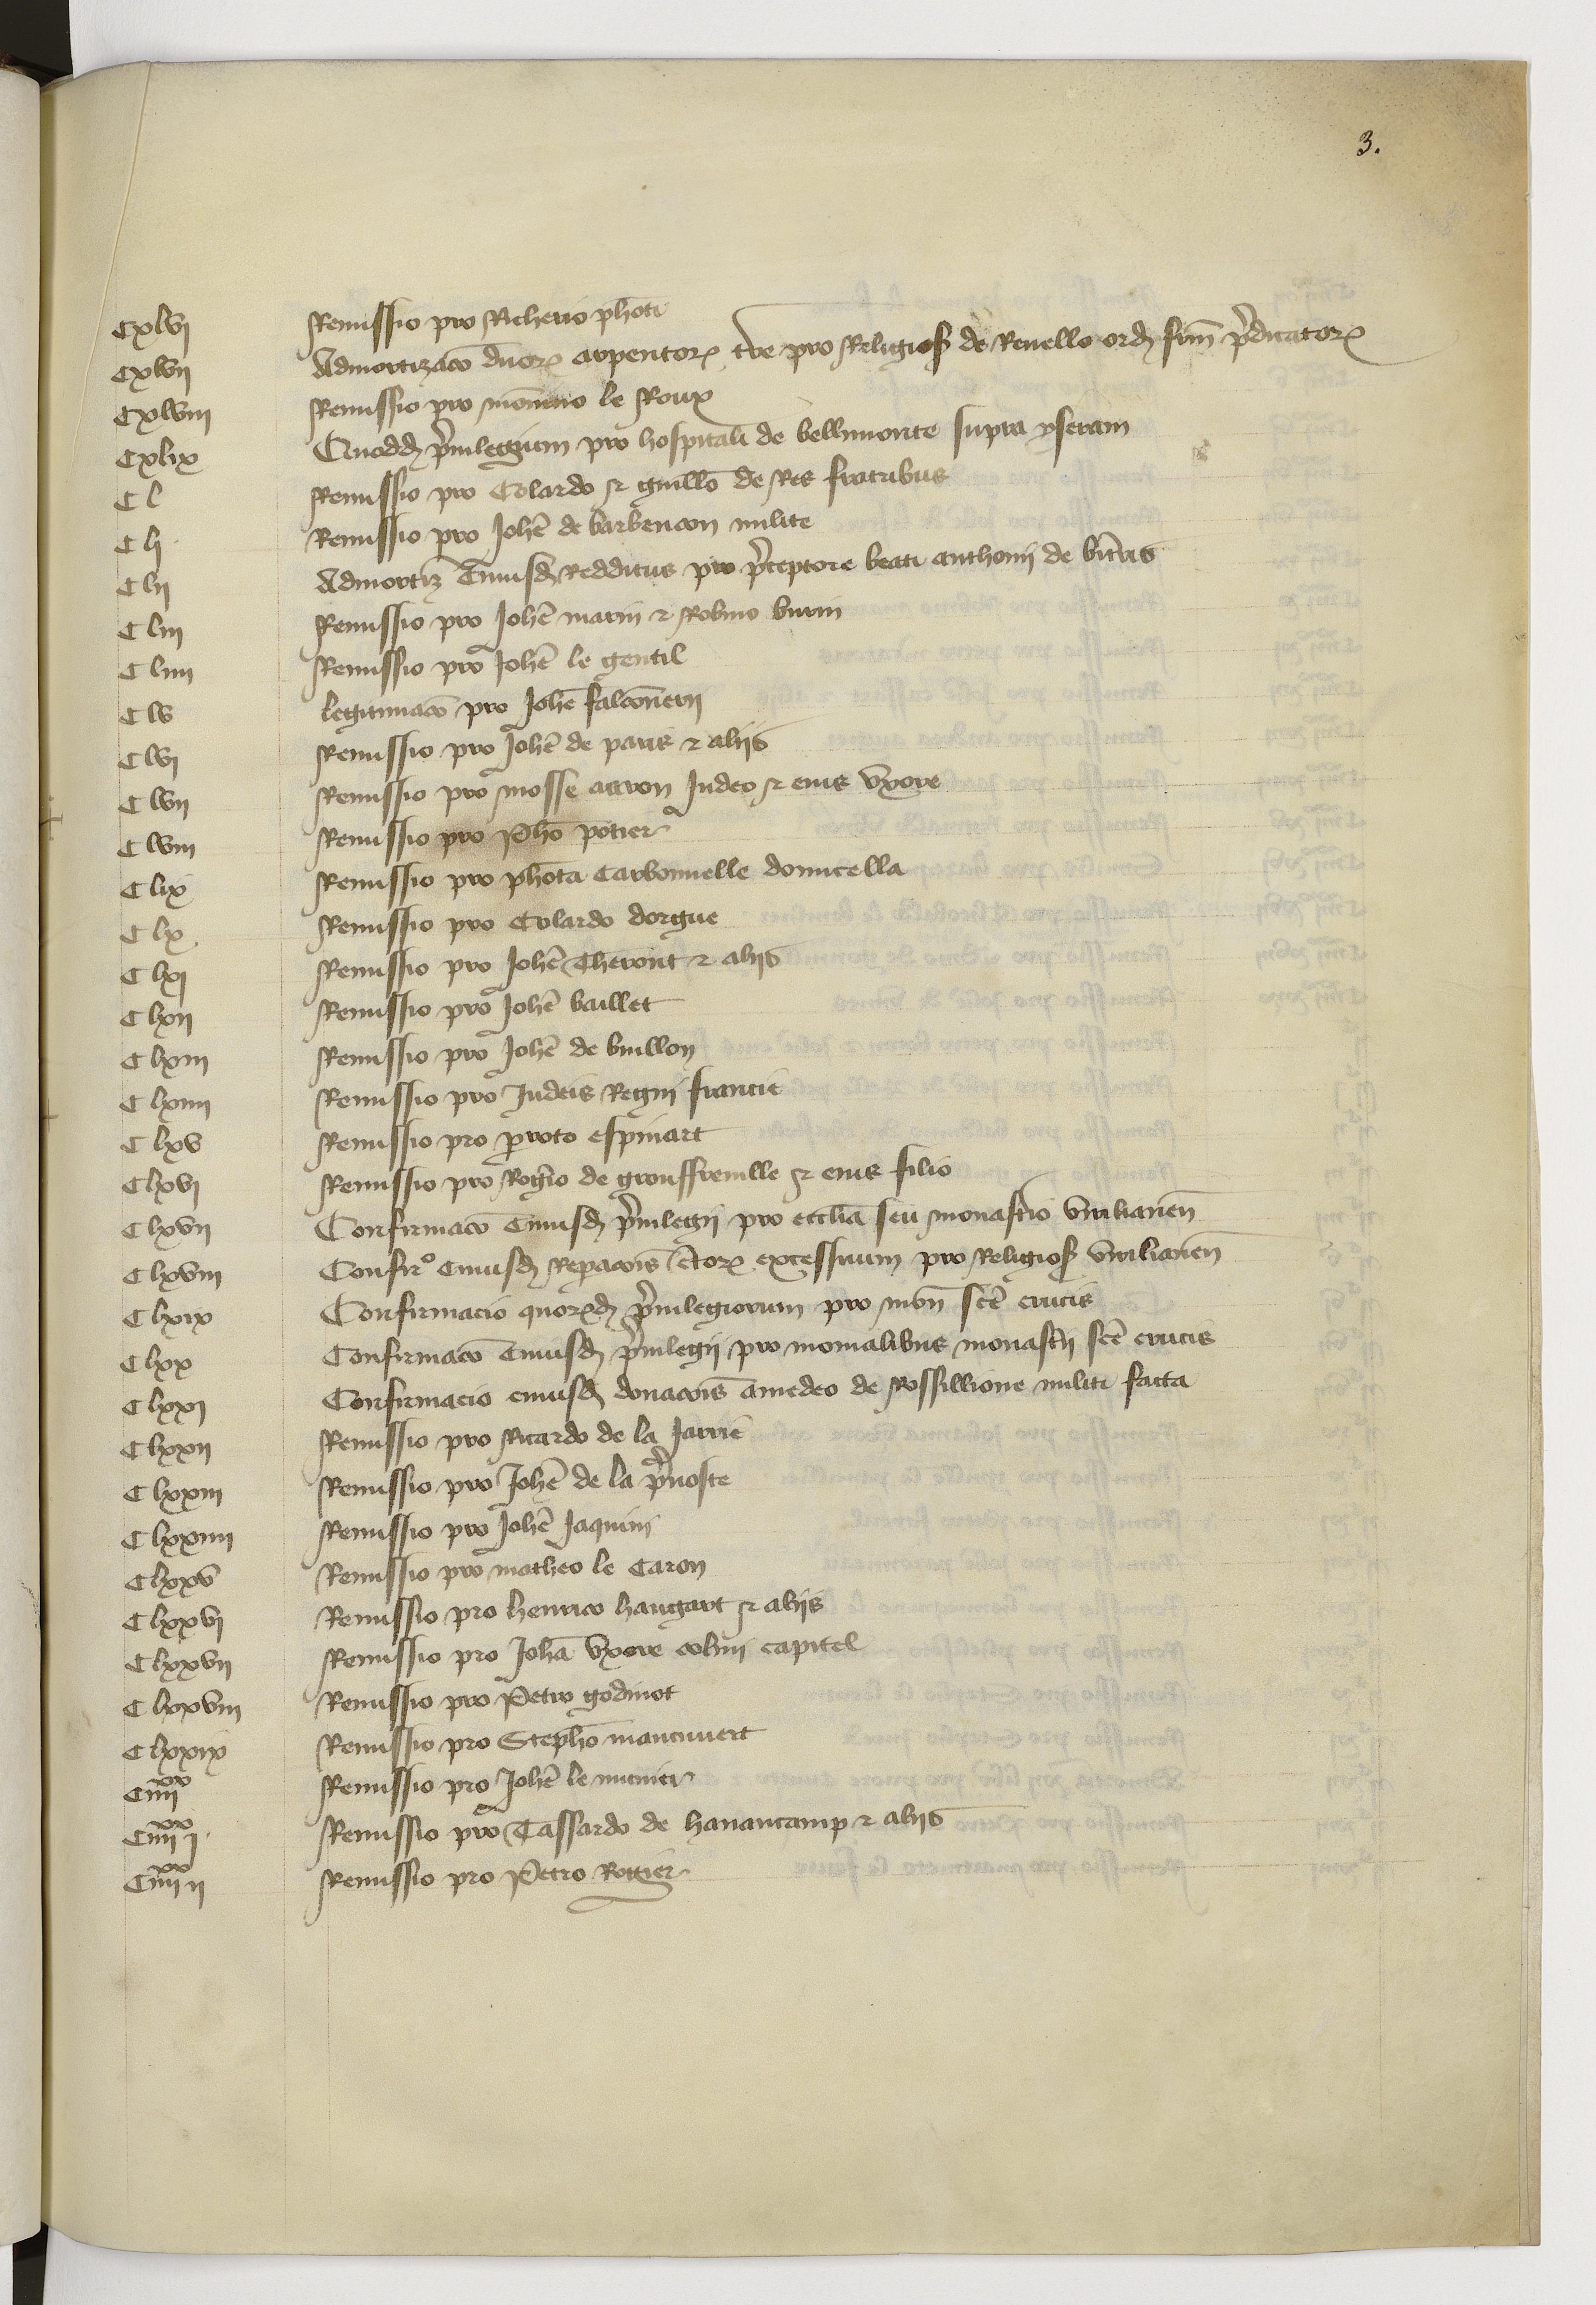 3.
Cxlvj Remissio pro Richerio photi
Cxlvij Admortizacō duoꝝ arpentoꝝ tr̄e pro Religioſ de Revello ordꝭ frūm p̄dicatoꝝ
Cxlviij Remissio pro monino le Roux
Cxlix Quoddꝫ p̄uilegium pro hospitali de bellimonte supra yseram
C l Remissio pro Colardo et guillō de Res fratribus
C lj Remissio pro Joh̄e de barbencon milite
C lij Admortiz̄ Cuiusdꝫ Redditus pro p̄ceptore beati anthonij de
C liij Remissio pro Joh̄e marin ⁊ Robino burin
C liiij Remissio pro Joh̄e le gentil
C lv legitimacō pro Joh̄e falconerij
C lvj Remissio pro Joh̄e de paris ⁊ alijs
C lvij Remissio pro mosse aaron Judeo et eius vxore
C lviij Remissio pro Ph̄o potier
C lix Remissio pro ph̄ota Carbonnelle domicella
C lx Remissio pro Colardo dorgue
C lxj Remissio pro Joh̄e Cheront ⁊ alijs
C lxij Remissio pro Joh̄e baillet
C lxiij Remissio pro Joh̄e de buillon
C lxiiij Remissio pro Judeis Regni francie
C lxv Remissio pro ꝑroto espinart
C lxvj Remissio pro Roḡio de grouffreville et eius filio
C lxvij Confirmacō Cuiusdꝫ p̄uilegij pro eccl̄ia seu monast̄io vrilianen̄
C lxviij Confirº Cuiusdꝫ Reꝑacōis c̄toꝝ excessuum pro Religioſ vrilianen̄
C lxix Confirmacio quoꝝdꝫ p̄uilegiorum pro mon̄ sc̄e crucis
C lxx Confirmacō Cuiusdꝫ p̄uilegij pro monialibus monast̄ij sc̄e crucis
C lxxj Confirmacio cuiusdꝫ donacōis amedeo de Rossillione militi facta
C lxxij Remissio pro Ricardo de la Jarrie
C lxxiij Remissio pro Joh̄e de la p̄uoste
C lxxiiij Remissio pro Joh̄e Jaquini
C lxxv Remissio pro matheo le Caron
C lxxvj Remissio pro henrico haugart et alijs
C lxxvij Remissio pro Joh̄a vxore colini capitel
C lxxviij Remissio pro Petro godinot
C lxxix Remissio pro Steph̄o maucuuert
Ciiijˣˣ Remissio pro Joh̄e le munier
Ciiijˣˣ j Remissio pro Tassardo de hanancamp ⁊ alijs
Ciiijˣˣ ij Remissio pro Petro Rottier